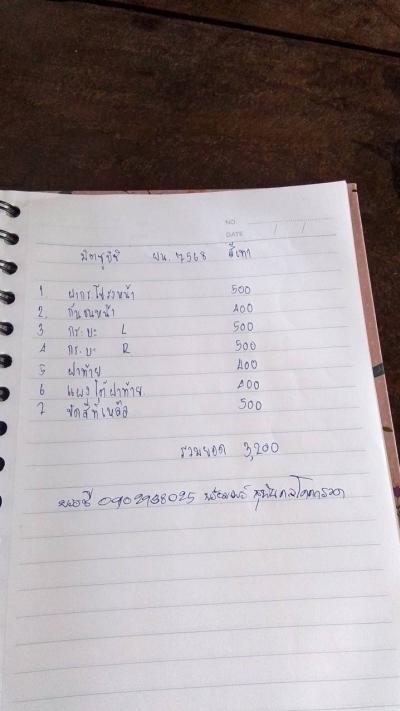 NO.
DATE / /
มิตซูบิชิ ผน. 7568 สีเทา
1 ฝากระโปรงหน้า 500
2. กันชนหน้า 400
3 กระบะ L 500
4 กระบะ R 500
5 ฝาท้าย 400
6 แผงใต้ฝาท้าย. 400
7 ขัดสีที่เหลือ 500
รวมยอด 3,200